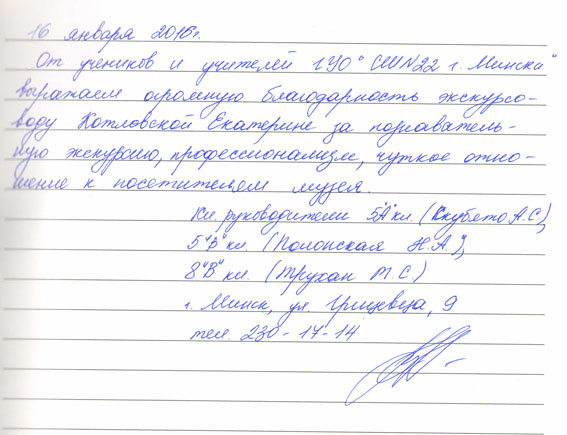 16 января 2016г.
От учеников и учителей ГУО "СШN22 г. Минска"
выражаем огромную благодарность экскурсо-
воду Котловской Екатерине за познаватель-
ную экскурсию, профессионализм, чуткое отно-
шение к посетителям музея.
Кл. руководители 5"А" кл. (Скубето А.С),
5"В" кл. (Полонская Н.А.),
8"В" кл. (Трухан М.С.)
г. Минск, ул. Грицевца, 9
тел. 230-17-14